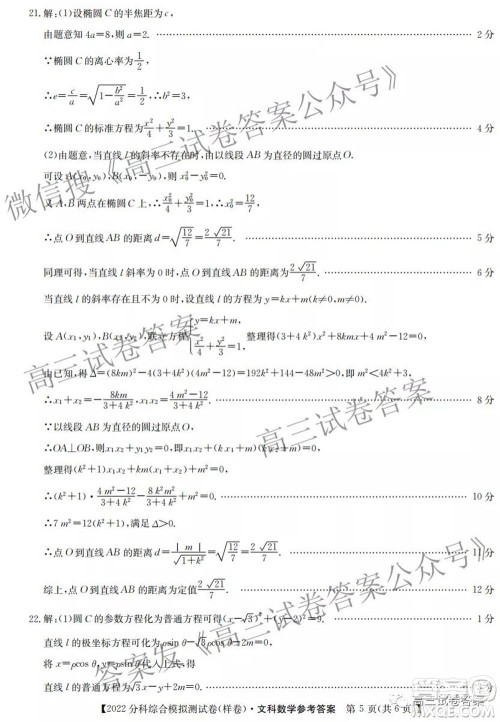 21.解:(1)设椭圆C的半焦距为c,
由题意知4a=8,则a=2. 2分
∵椭圆C的离心率为1/2,
∴e=c/a=√(1-b²/a²)=1/2,∴b²=3,
∴椭圆C的标准方程为x²/4+y²/3=1. 4分
(2)由题意,当直线l的斜率不存在时,由以线段AB为直径的圆过原点O.
可设A(x₀,y₀),B(x₀,-y₀),
又A,B两点在椭圆C上,∴x₀²/4+x₀²/3=1,∴x₀²=12/7,
∴点O到直线AB的距离d=√(12/7)=2√21/7.
同理可得,当直线l斜率为0时,点O到直线AB的距离为2√21/7. 6分
当直线l的斜率存在且不为0时,设直线l的方程为y=kx+m(k≠0),
设A(x₁,y₁),B(x₂,y₂),联立方程{y=kx+m, x²/4+y²/3=1, 整理得(3+4k²)x²+8kmx+4m²-12=0,
由已知,得Δ=(8km)²-4(3+4k²)(4m²-12)=192k²+144-48m²>0,
∴x₁+x₂=-8km/(3+4k²),x₁x₂=(4m²-12)/(3+4k²). 8分
∵以线段AB为直径的圆过原点O,
∴OA⊥OB,则x₁x₂+y₁y₂=0,即x₁x₂+(kx₁+m)(kx₂+m)=0,
整理得(k²+1)x₁x₂+km(x₁+x₂)+m²=0,
∴(k²+1)·(4m²-12)/(3+4k²)-8k²m²/(3+4k²)+m²=0. 10分
∴7m²=12(k²+1),满足Δ>0.
∴点O到直线AB的距离d=|m|/√(1+k²)=√(12/7)=2√21/7. 11分
综上,点O到直线AB的距离为定值2√21/7. 12分
22.解:(1)圆C的参数方程化为普通方程可得(x-√3)²+(y-2)²=9. 1分
直线l的极坐标方程可化为
将x=ρcos θ,y=ρsin θ代入上式,
直线l的普通方程为
【2022分科综合模拟测试卷(样卷)·文科数学参考答案 第5页(共6页)】
微信搜《高三试卷答案公众号》
高三试卷答案
高三试卷答案
答案发《高三试卷答案公众号》
高三试卷答案